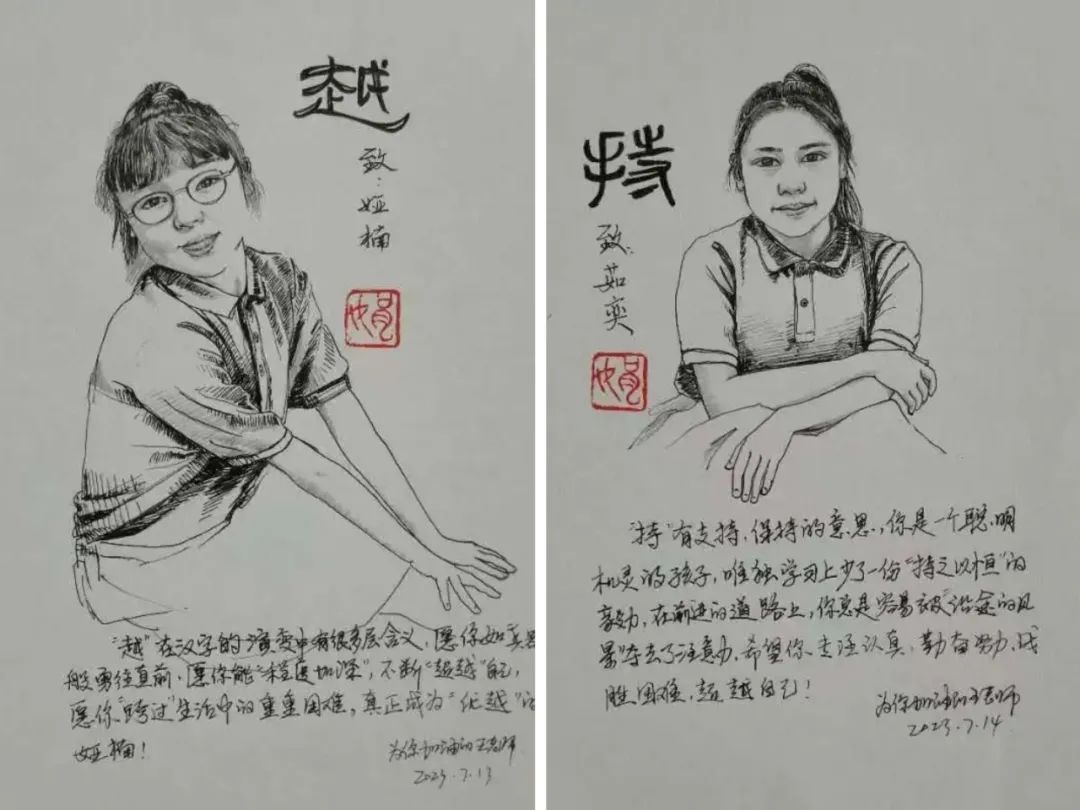 越
致：娅楠
娟
"越"在汉字的演变中有很多层含义，愿你如英
般勇往直前，愿你能"程度加深"，不断"超越"自己，
愿你"跨过"生活中的重重困难，真正成为"优越"的
娅楠！
为你加油的王老师
2023.7.13
持
致：茹奕
娟
"持"有支持、保持的意思，你是一个聪明
机灵的孩子，唯独学习上少了一份"持之以恒"的
毅力，在前进的道路上，你总是容易被"沿途的风
景"夺去了注意力，希望你 认真，勤奋努力，战
胜困难，超越自己！
为你加油的王老师
2023.7.14